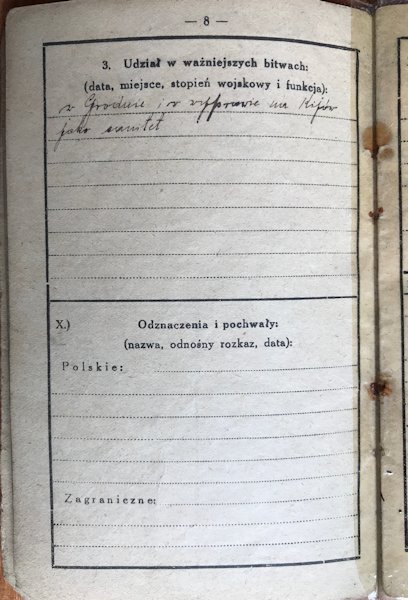 — 8 —
3. Udział w ważniejszych bitwach:
(data, miejsce, stopień wojskowy i funkcja):
w Grodnie i w wyprawie na Kijów
jako sanitet
X.) Odznaczenia i pochwały:
(nazwa, odnośny rozkaz, data):
Polskie:
Zagraniczne: